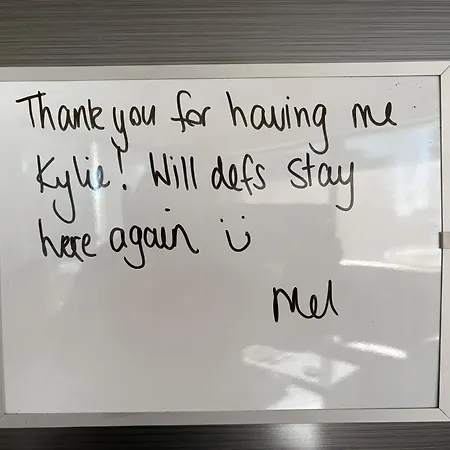 Thank you for having me
Kylie! Will defs stay
here again ü
Mel